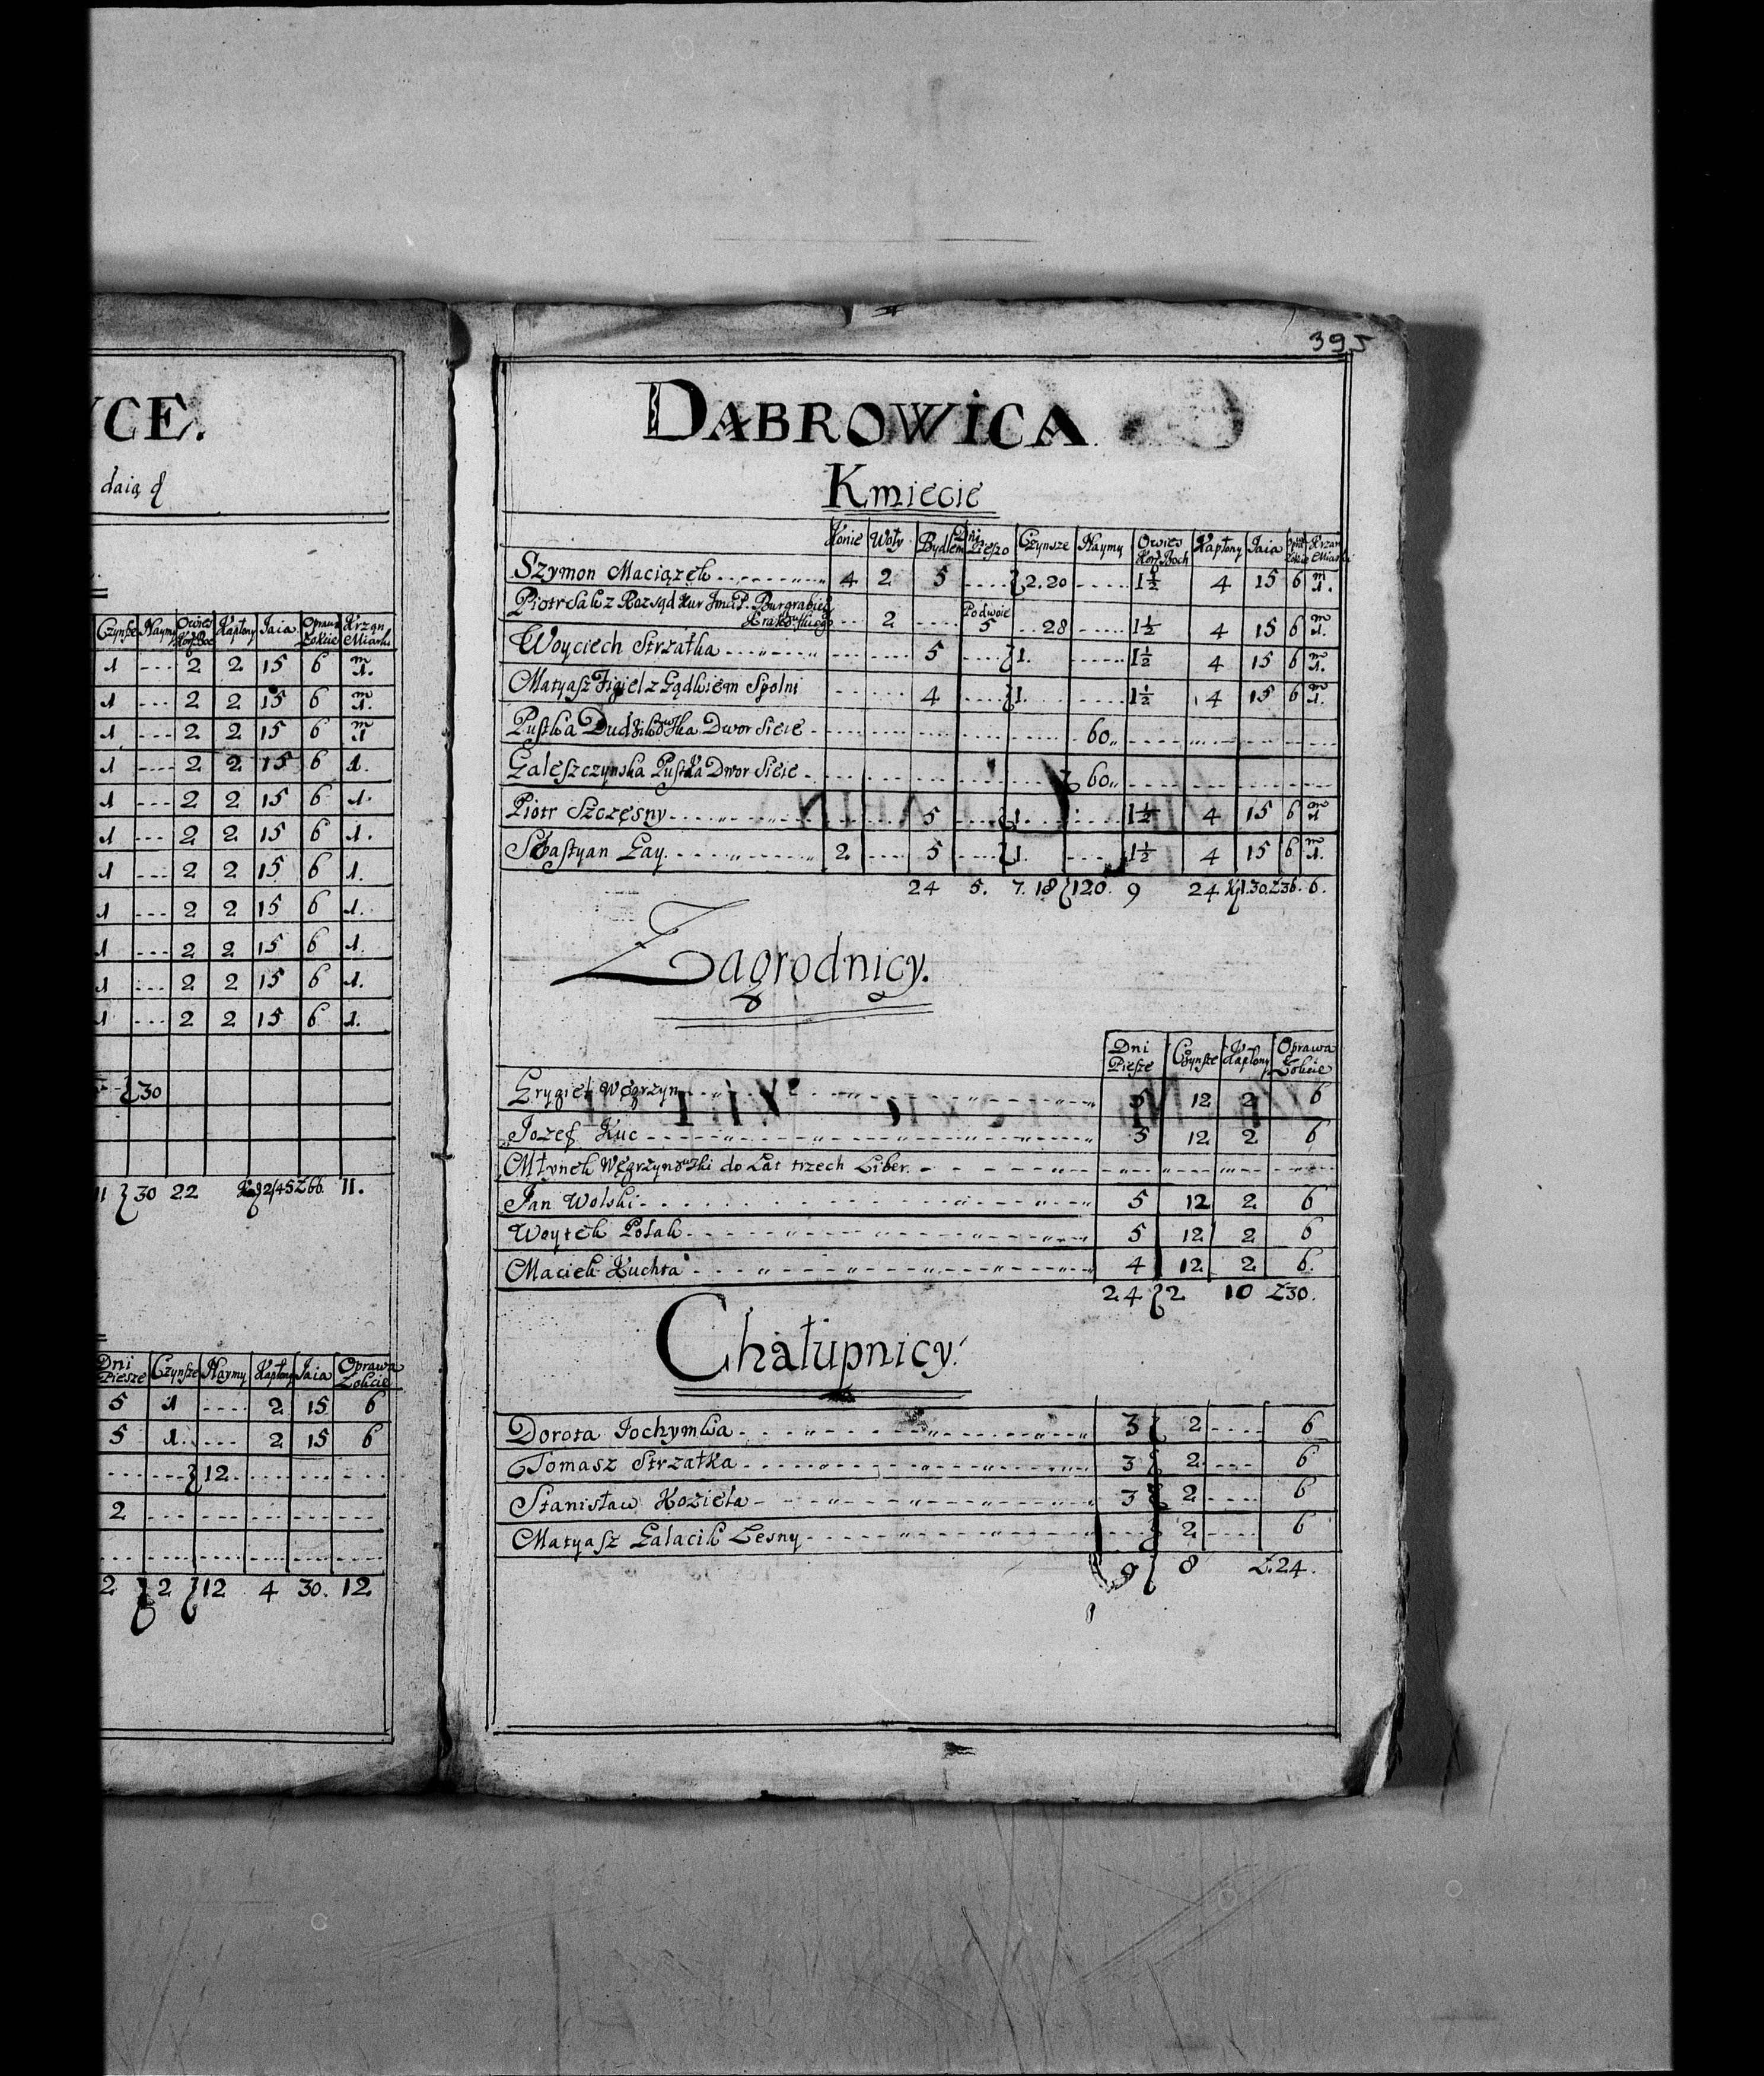 YCE.
daią
Czynsze Naymy Owies Korz. Boc Kapłony Jaia Oprawa Łokcie Krzan Miarki
1 --- 2 2 15 6 m 1.
1 --- 2 2 15 6 m 1.
1 --- 2 2 15 6 m 1
1 --- 2 2 15 6 1.
1 --- 2 2 15 6 1.
1 --- 2 2 15 6 1.
1 --- 2 2 15 6 1.
1 --- 2 2 15 6 1.
1 --- 2 2 15 6 1.
1 --- 2 2 15 6 1.
1 --- 2 2 15 6 1.
30
11 30 22 2/45 Ł66. 11.
Dni Piesze Czynsze Naymy Kapłony Jaia Oprawa Łokcie
5 1 ---- 2 15 6
5 1. --- 2 15 6
---- --- 12 ---- ---- ----
2 ---- ---- ---- ---- ----
2 2 12 4 30. 12
395
DABROWICA
Kmiecie
Konie Woły Bydłem Dni Pieszo Czynsze Naymy Owies Korz. Boch Kapłony Jaia Opra Łokcie Krzan Miarki
Szymon Maciązek 4 2 5 ---- 2.20 ---- 1½ 4 15 6 m 1.
Piotr Sak z Rozsąd Kur Jmci P. Burgrabieg Krakowskiego --- 2 ---- Podwoie 5 28 ---- 1½ 4 15 6 m 1.
Woyciech Strzałka --- ---- 5 ---- 1. ---- 1½ 4 15 6 m 1.
Matyasz Figiel z Gądkiem Spolni ---- ---- 4 ---- 1. ---- 1½ 4 15 6 m 1.
Pustka Dudzikowska Dwor Sieie 60
Galeszczynska Pustka Dwor Sieie 60
Piotr Szczęsny ---- 5 ---- 1. ---- 1½ 4 15 6 m 1
Sebastyan Gay. 2 ---- 5 ---- 1. ---- 1½ 4 15 6 m 1.
24 5. 7. 18 120. 9 24 1.30. Ł36. 6.
Zagrodnicy.
Dni Piesze Czynsze Kapłony Oprawa Łokcie
Grygiel Węgrzyn 5 12 2 6
Jozef Kuc 5 12 2 6
Młynek Węgrzynowski do Lat trzech Liber.
Jan Wolski 5 12 2 6
Woytek Polak 5 12 2 6
Maciek Kuchta 4 12 2 6.
24 2 10 Ł30.
Chałupnicy.
Dorota Jochymka 3 2 ---- 6
Tomasz Strzałka 3 2 ---- 6
Stanisław Kozieła 3 2 ---- 6
Matyasz Galacik Lesny ---- 2 ---- 6
9 8 Ł.24.